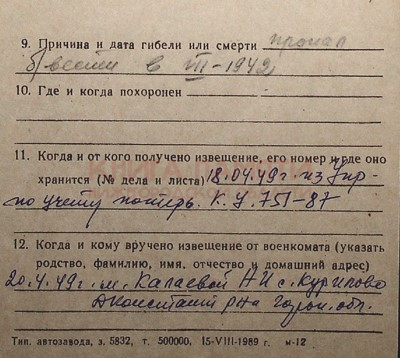 9. Причина и дата гибели или смерти пропал
б/вести в III-1942
10. Где и когда похоронен
11. Когда и от кого получено извещение, его номер и где оно
хранится (№ дела и листа) 18.04.49г. из Упр-
по учету потерь. К.У. 751-87
12. Когда и кому вручено извещение от военкомата (указать
родство, фамилию, имя, отчество и домашний адрес)
20.4.49г. м. Калаевой НИ с. Курилово
Д.Константин р-на Горьк. обл.
Тип. автозавода, з. 5832, т. 500000, 15-VIII-1989 г. м-12